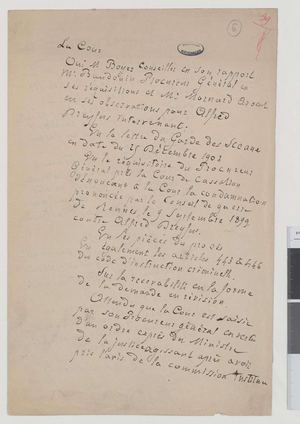 La Cour
Oui M. Boyer Conseiller en son rapport
Mr Baudouin Procureur Général en
ses réquisitions et Me Mornard avocat
en ses observations pour Alfred
Dreyfus intervenant.
Vu la lettre du Garde des Sceaux
en date du 25 Décembre 1903
Vu le réquisitoire du Procureur
Général près la Cour de Cassation
dénonçant à la Cour la condamnation
prononcée par le Conseil de guerre
de Rennes le 9 Septembre 1899
contre Alfred Dreyfus.
Vu les pièces du procès
Vu également les articles 443 à 446
du code d'instruction criminelle.
Sur la recevabilité en la forme
de la demande en révision.
Attendu que la Cour est saisie
par son Procureur général en vertu
d'un ordre exprès du Ministre
de la justice agissant après avoir
pris l'avis de la commission instituée
6